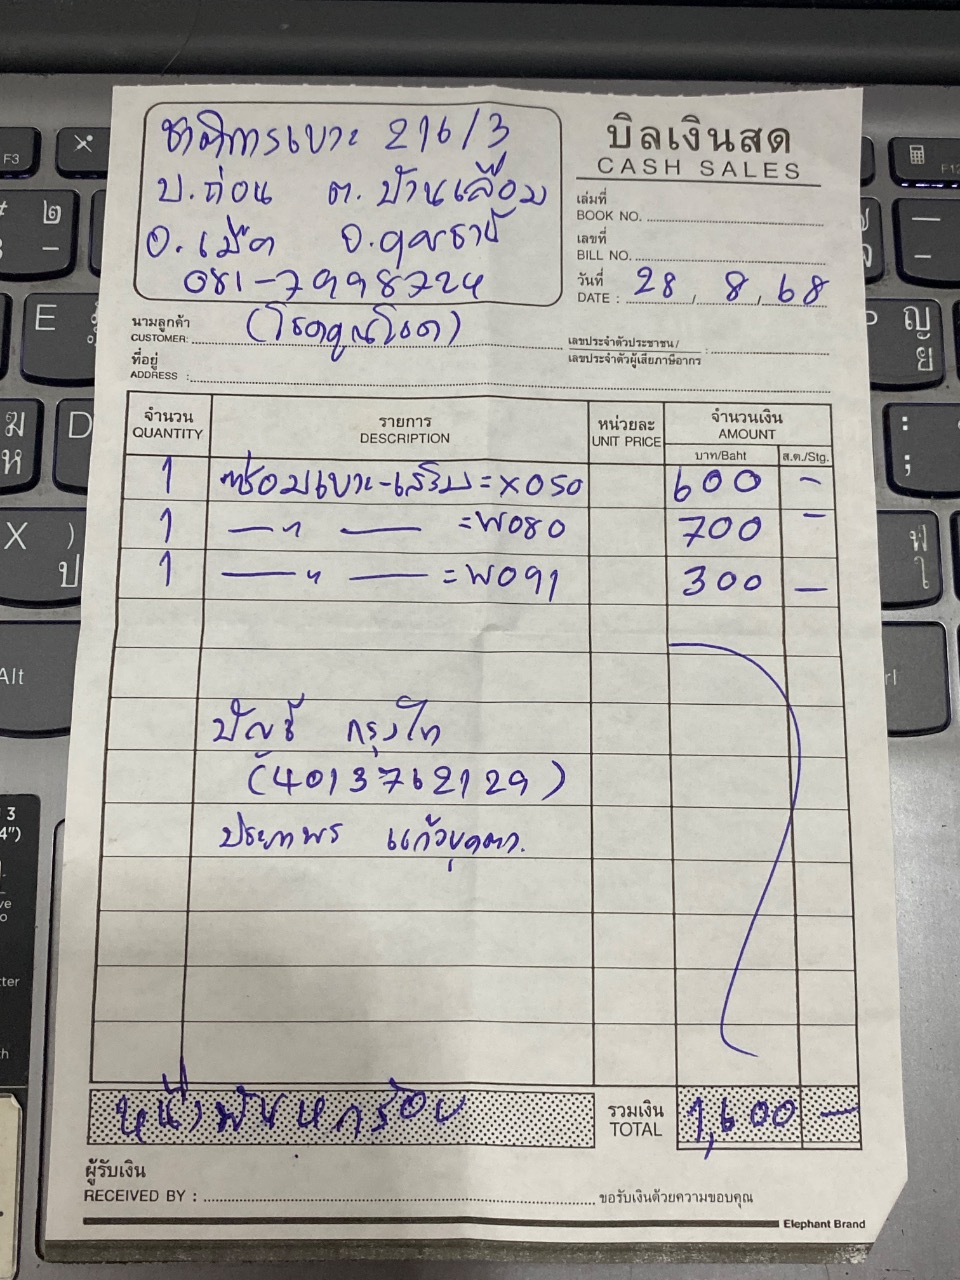 ชาติการเบาะ 216/3
บ.ถ่อน ต. บ้านเลื่อม
อ. เมือง จ.อุดรธานี
081-7998724
บิลเงินสด
CASH SALES
เล่มที่
BOOK NO.
เลขที่
BILL NO.
วันที่
DATE : 28, 8, 68
นามลูกค้า
CUSTOMER: (โชคคูณโชค)
เลขประจำตัวประชาชน/
เลขประจำตัวผู้เสียภาษีอากร :
ที่อยู่
ADDRESS :
จำนวน รายการ หน่วยละ จำนวนเงิน
QUANTITY DESCRIPTION UNIT PRICE AMOUNT
บาท/Baht ส.ต./Stg.
1 ซ่อมเบาะ-เสริม = X050 600 -
1 — " — = W080 700 -
1 — " — = W091 300 -
บัญชี กรุงไท
(4013762129)
แก้ว
หนึ่งพันหกร้อย รวมเงิน 1,600 -
TOTAL
ผู้รับเงิน
RECEIVED BY : ขอรับเงินด้วยความขอบคุณ
Elephant Brand
F3
F12
E
D
X
Alt